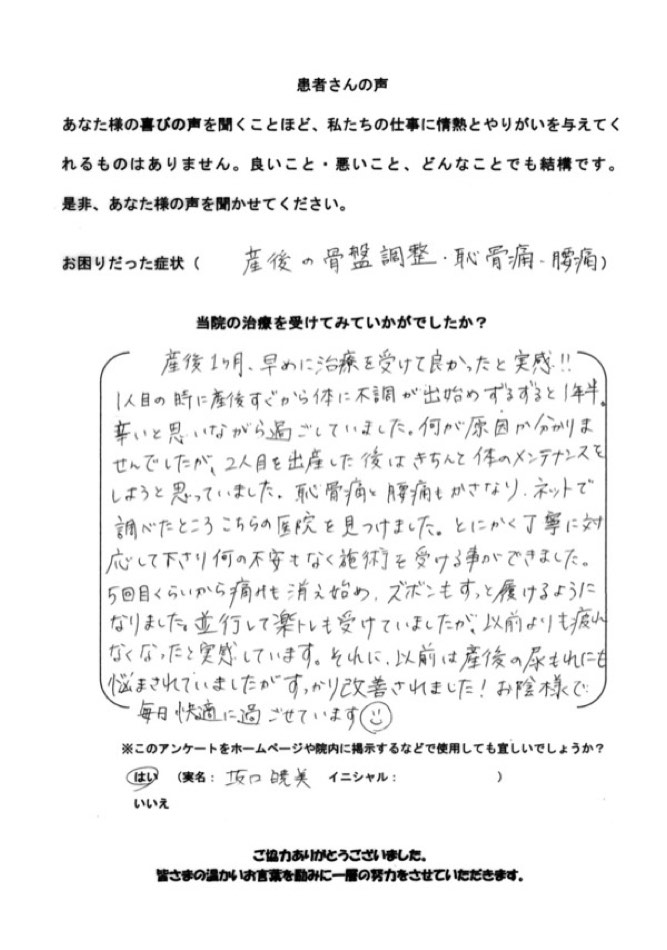 患者さんの声
あなた様の喜びの声を聞くことほど、私たちの仕事に情熱とやりがいを与えてく
れるものはありません。良いこと・悪いこと、どんなことでも結構です。
是非、あなた様の声を聞かせてください。
お困りだった症状（　産後の骨盤調整・恥骨痛・腰痛）
当院の治療を受けてみていかがでしたか？
産後1ヶ月、早めに治療を受けて良かったと実感!!
1人目の時に産後すぐから体に不調が出始めずるずると1年半。
辛いと思いながら過ごしていました。何が原因か分かりま
せんでしたが、2人目を出産した後はきちんと体のメンテナンスを
しようと思っていました。恥骨痛と腰痛もかさなり、ネットで
調べたところこちらの医院を見つけました。とにかく丁寧に対
応して下さり何の不安もなく施術を受ける事ができました。
5回目くらいから痛みも消え始め、ズボンもすっと履けるように
なりました。並行して楽トレも受けていましたが、以前よりも疲れ
なくなったと実感しています。それに、以前は産後の尿もれにも
悩まされていましたがすっかり改善されました！お陰様で
毎日快適に過ごせています
※このアンケートをホームページや院内に掲示するなどで使用しても宜しいでしょうか？
はい　（実名：坂口暁美　イニシャル：　　　）
いいえ
ご協力ありがとうございました。
皆さまの温かいお言葉を励みに一層の努力をさせていただきます。